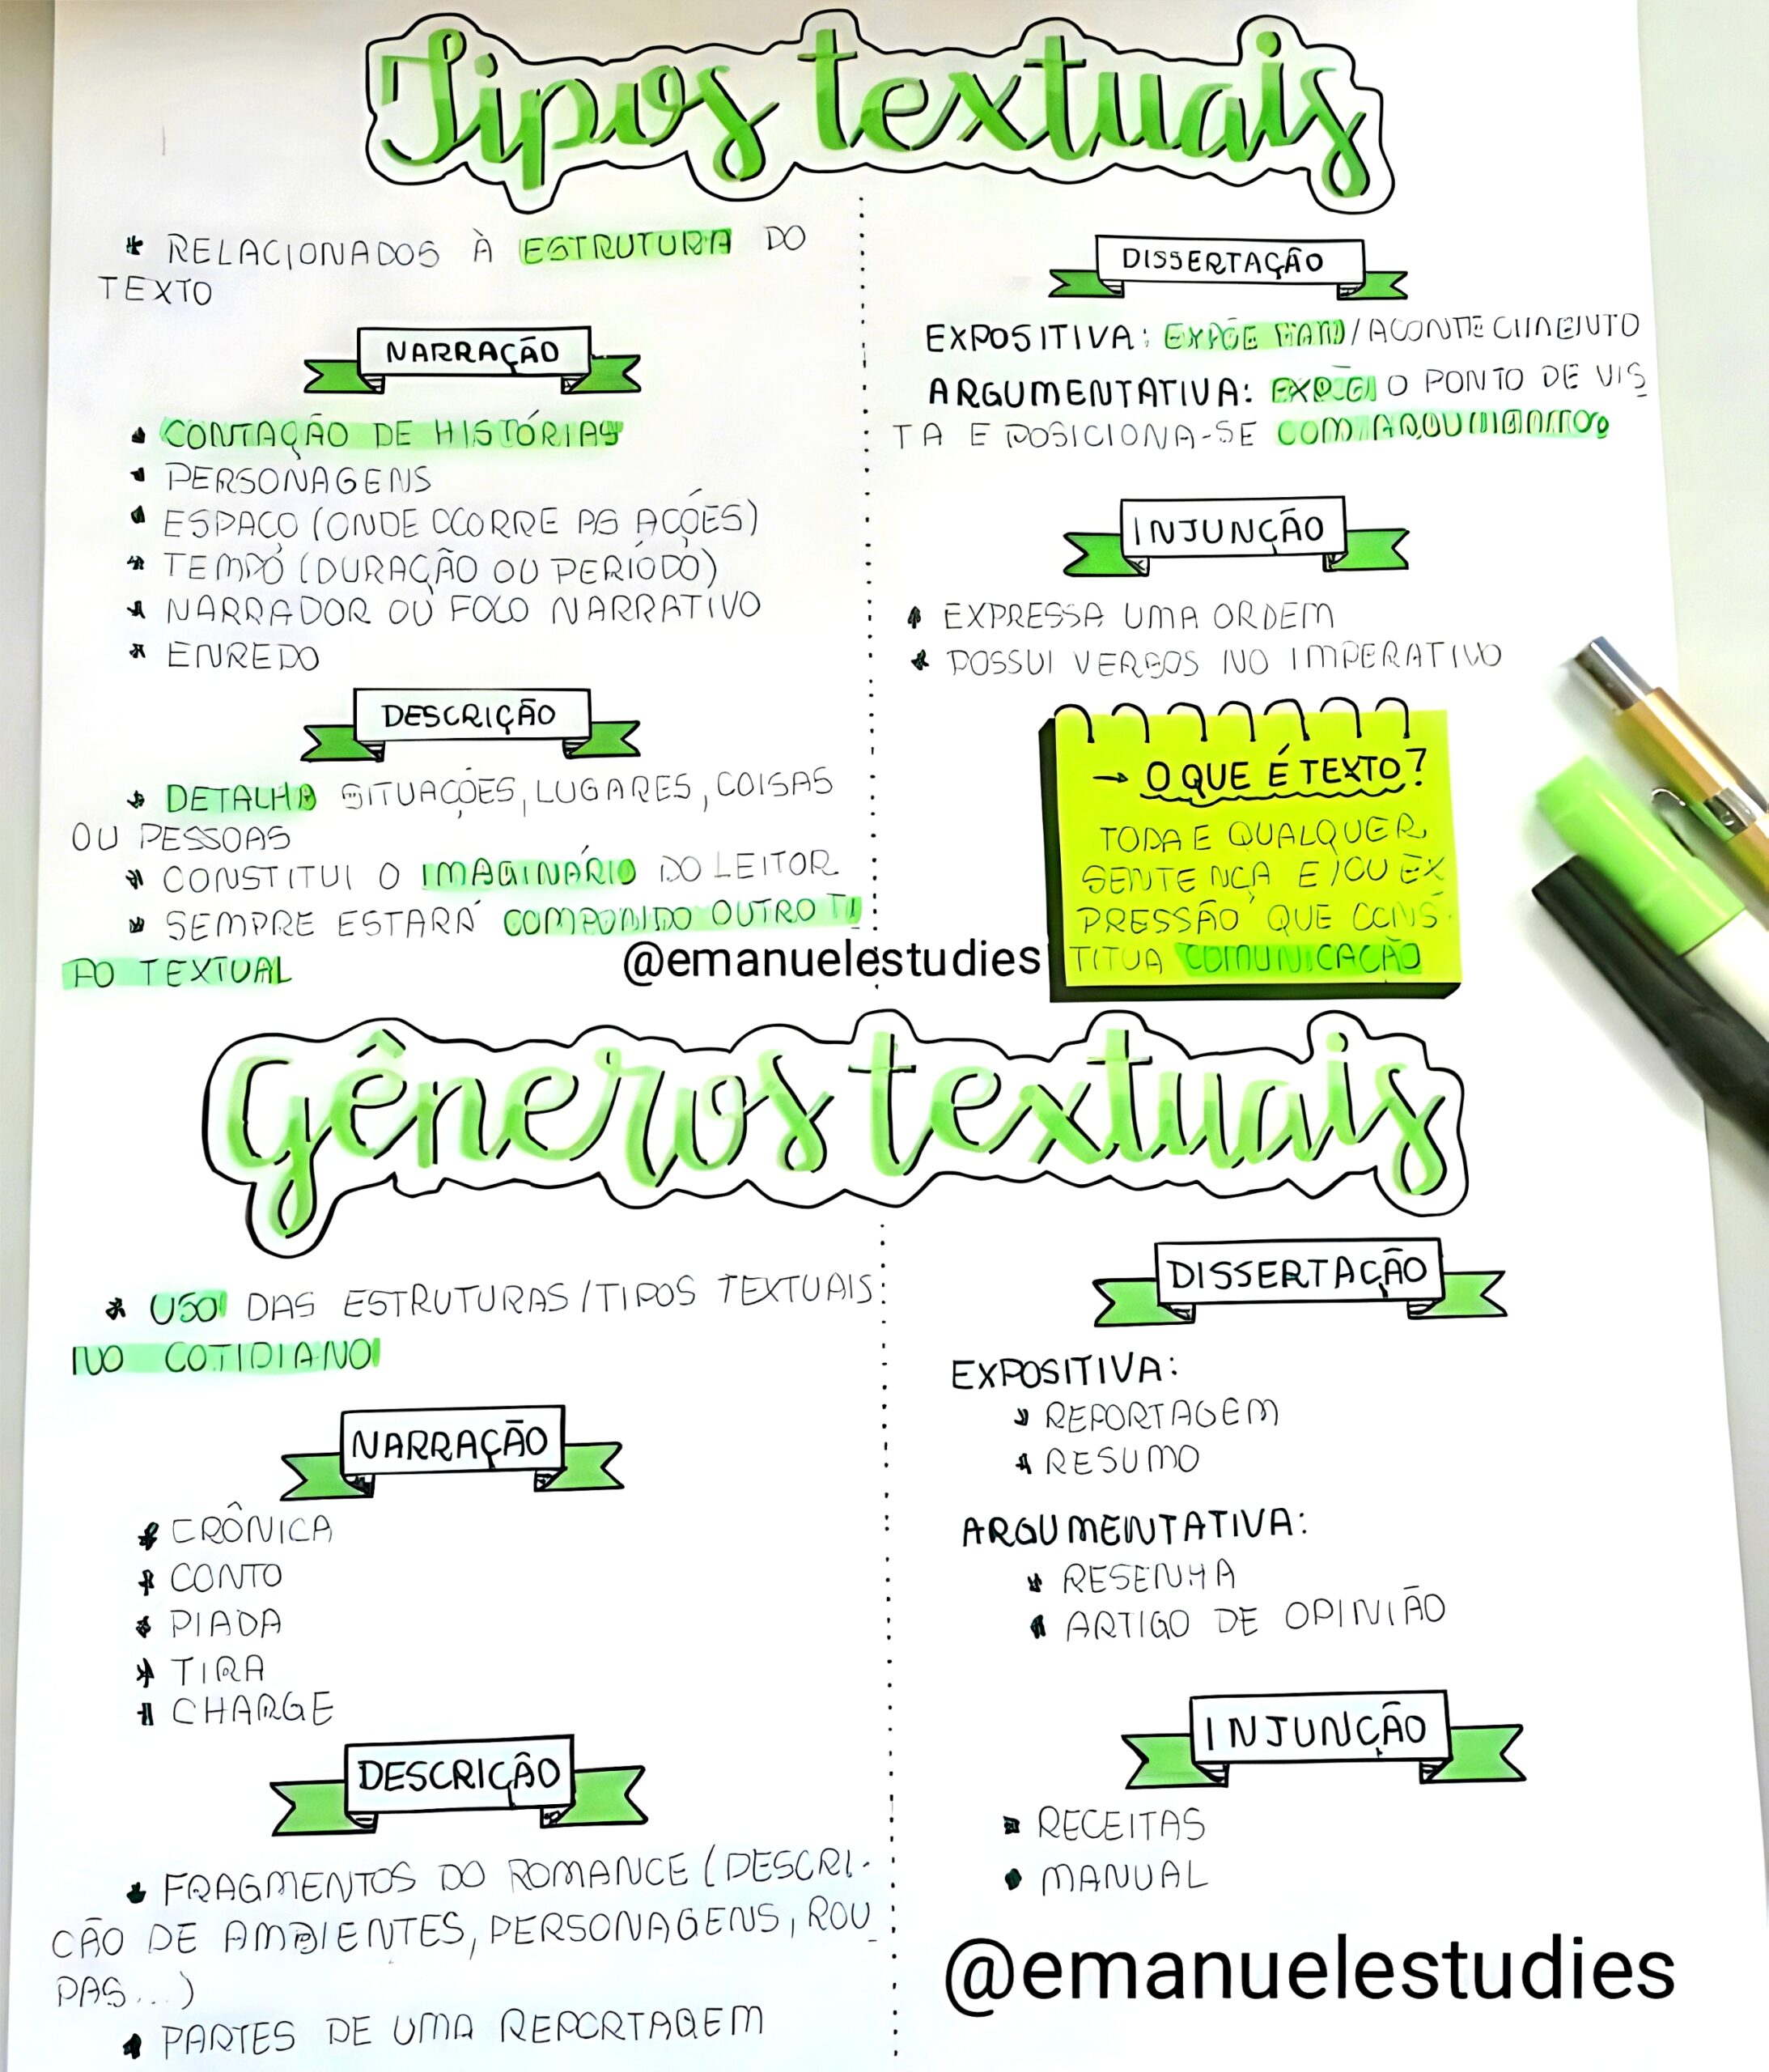 Tipos textuais
* RELACIONADOS À ESTRUTURA DO
TEXTO
NARRAÇÃO
CONTAÇÃO DE HISTÓRIAS
PERSONAGENS
ESPAÇO (ONDE OCORRE AS AÇÕES)
TEMPO (DURAÇÃO OU PERÍODO)
NARRADOR OU FOCO NARRATIVO
ENREDO
DESCRIÇÃO
DETALHA SITUAÇÕES, LUGARES, COISAS
OU PESSOAS
CONSTITUI O IMAGINÁRIO DO LEITOR
SEMPRE ESTARÁ COMPONDO OUTRO TI
PO TEXTUAL
@emanuelestudies
DISSERTAÇÃO
EXPOSITIVA: EXPÕE /ACONTECIMENTO
ARGUMENTATIVA: O PONTO DE VIS
TA E POSICIONA-SE COM ARGUMENTOS
INJUNÇÃO
EXPRESSA UMA ORDEM
POSSUI VERBOS NO IMPERATIVO
→ O QUE É TEXTO?
TODA E QUALQUER
SENTENÇA E/OU EX
PRESSÃO QUE CONS-
TITUA COMUNICAÇÃO
Gêneros textuais
* USO DAS ESTRUTURAS/TIPOS TEXTUAIS
NO COTIDIANO
NARRAÇÃO
CRÔNICA
CONTO
PIADA
TIRA
CHARGE
DESCRIÇÃO
FRAGMENTOS DO ROMANCE (DESCRI-
ÇÃO DE AMBIENTES, PERSONAGENS, ROU
PAS...)
PARTES DE UMA REPORTAGEM
DISSERTAÇÃO
EXPOSITIVA:
REPORTAGEM
RESUMO
ARGUMENTATIVA:
RESENHA
ARTIGO DE OPINIÃO
INJUNÇÃO
RECEITAS
MANUAL
@emanuelestudies